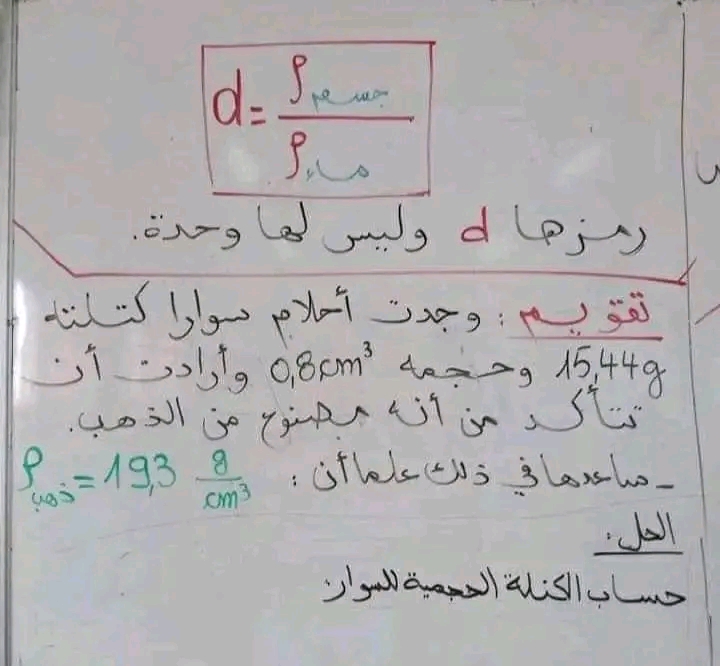 d = ρجسم / ρماء
رمزها d وليس لها وحدة.
تقويم: وجدت أحلام سوارا كتلته
15,44g وحجمه 0,8cm³ وأرادت أن
تتأكد من أنه مصنوع من الذهب.
- ساعدها في ذلك علما أن: ρذهب = 19,3 g/cm³
الحل:
حساب الكتلة الحجمية للسوار